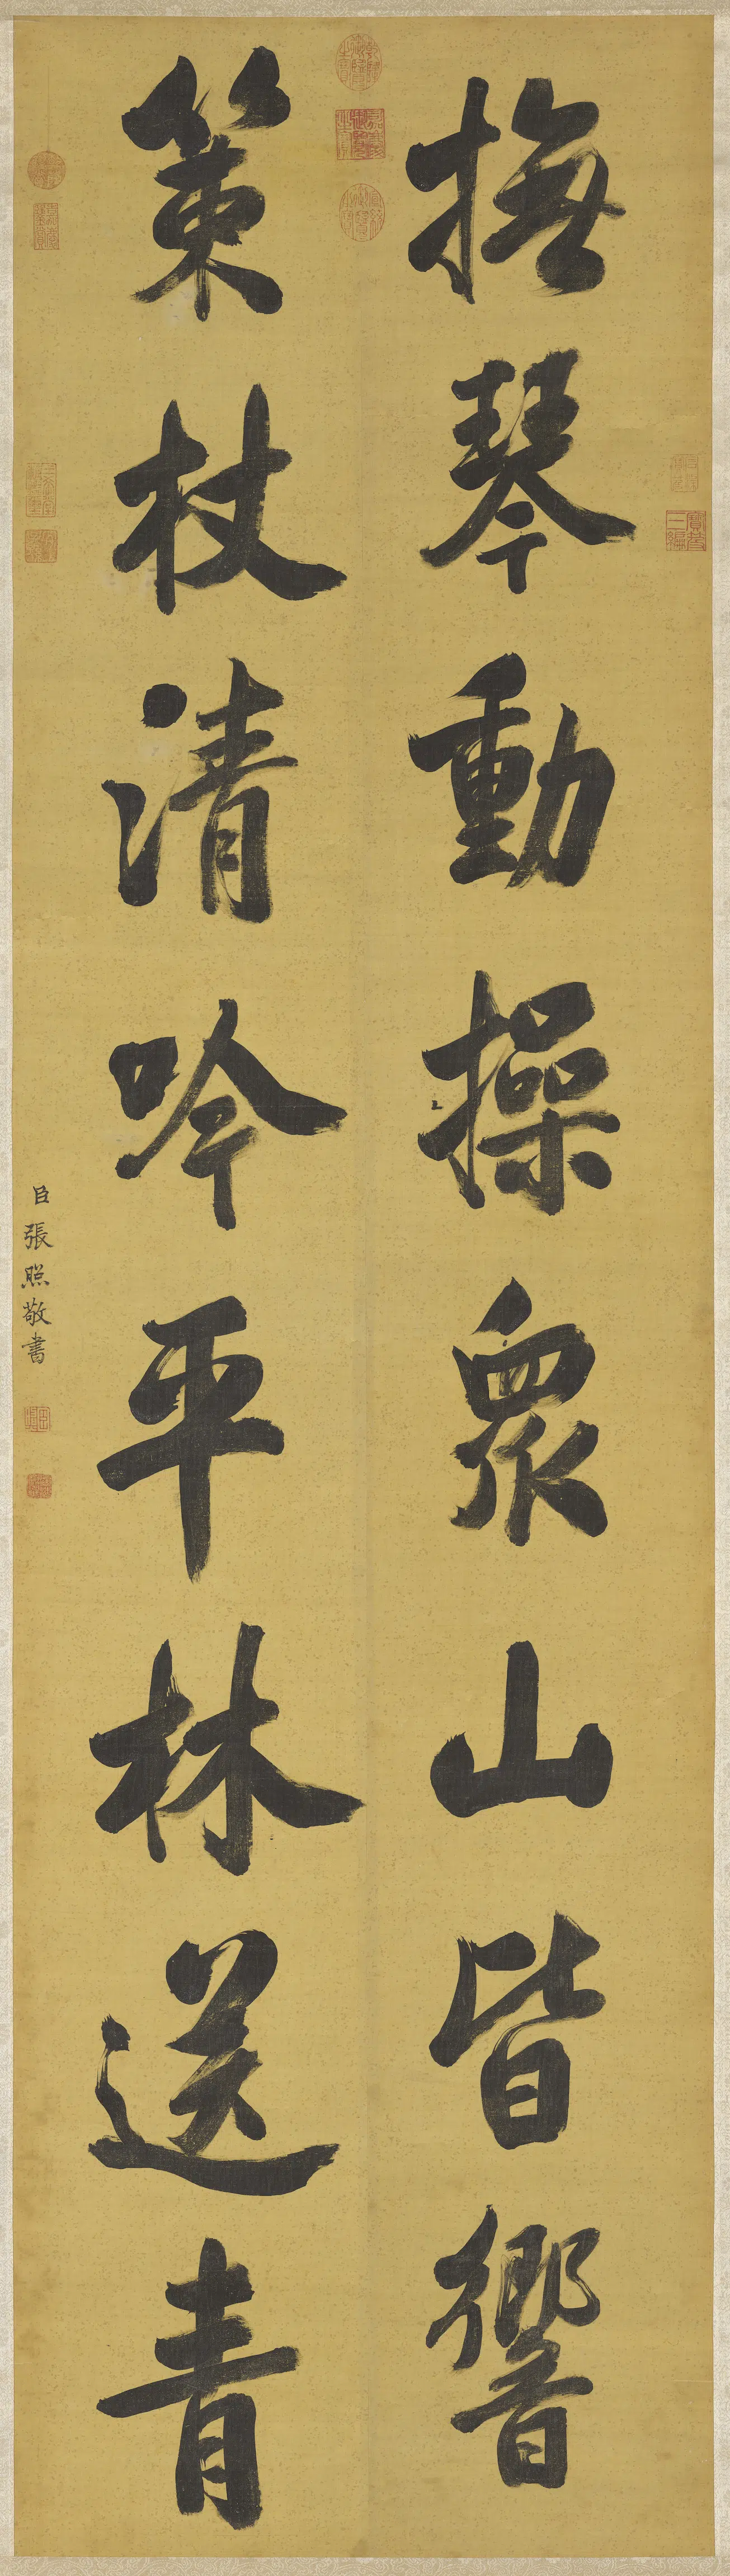 撫琴動操眾山皆響
策杖清吟平林送青
臣張照敬書